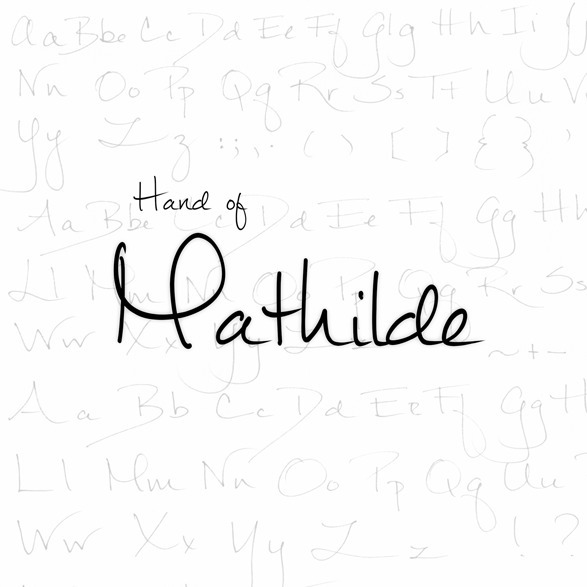 Aa Bb Cc Dd Ee Ff Gg Hh Ii
Nn Oo Pp Qq Rr Ss Tt Uu V
Yy Zz : ; , . ( ) [ ] { } '
Hand of
Aa Bb Cc Dd Ee Ff Gg Hh
Mathilde
Ll Mm Nn Oo Pp Qq Rr Ss
Ww Xx Yy Zz ~ + -
Aa Bb Cc Dd Ee Ff Gg H
Ll Mm Nn Oo Pp Qq Uu
Ww Xx Yy Zz ! ?